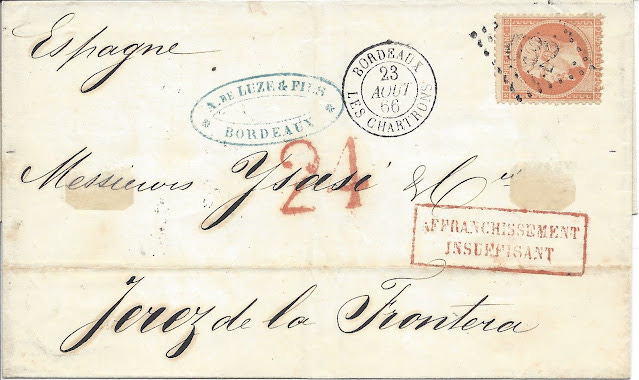 Espagne
A. DE LUZE & FILS
BORDEAUX
BORDEAUX
23
AOUT
66
LES CHARTRONS
24
Messieurs Ysasi & Cie
AFFRANCHISSEMENT
INSUFFISANT
Jerez de la Frontera